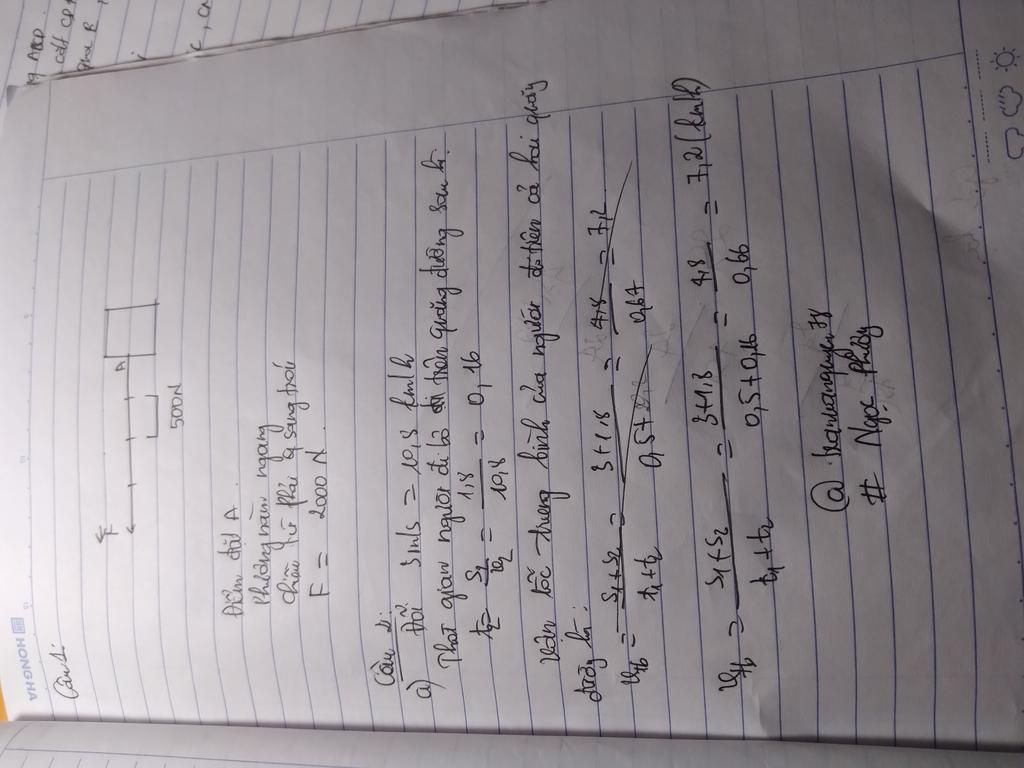 HONGHA
Câu 1:
F
A
500N
Điểm đặt A.
Phương nằm ngang
chiều từ phải q sang trái
F = 2000 N.
Câu 2:
a) Đổi 3m/s = 10,8 km/h
Thời gian người đi bộ đi trên quãng đường sau là.
t2 = S2/v2 = 1,8/10,8 = 0,16
Vận tốc trung bình của người đó trên cả hai quãng
đường là:
vtb = S1+S2/t1+t2 = 3+1,8/0,5+ = 4,8/0,67 = 7,2
vtb = S1+S2/t1+t2 = 3+1,8/0,5+0,16 = 4,8/0,66 = 7,2 (km/h)
# Ngọc